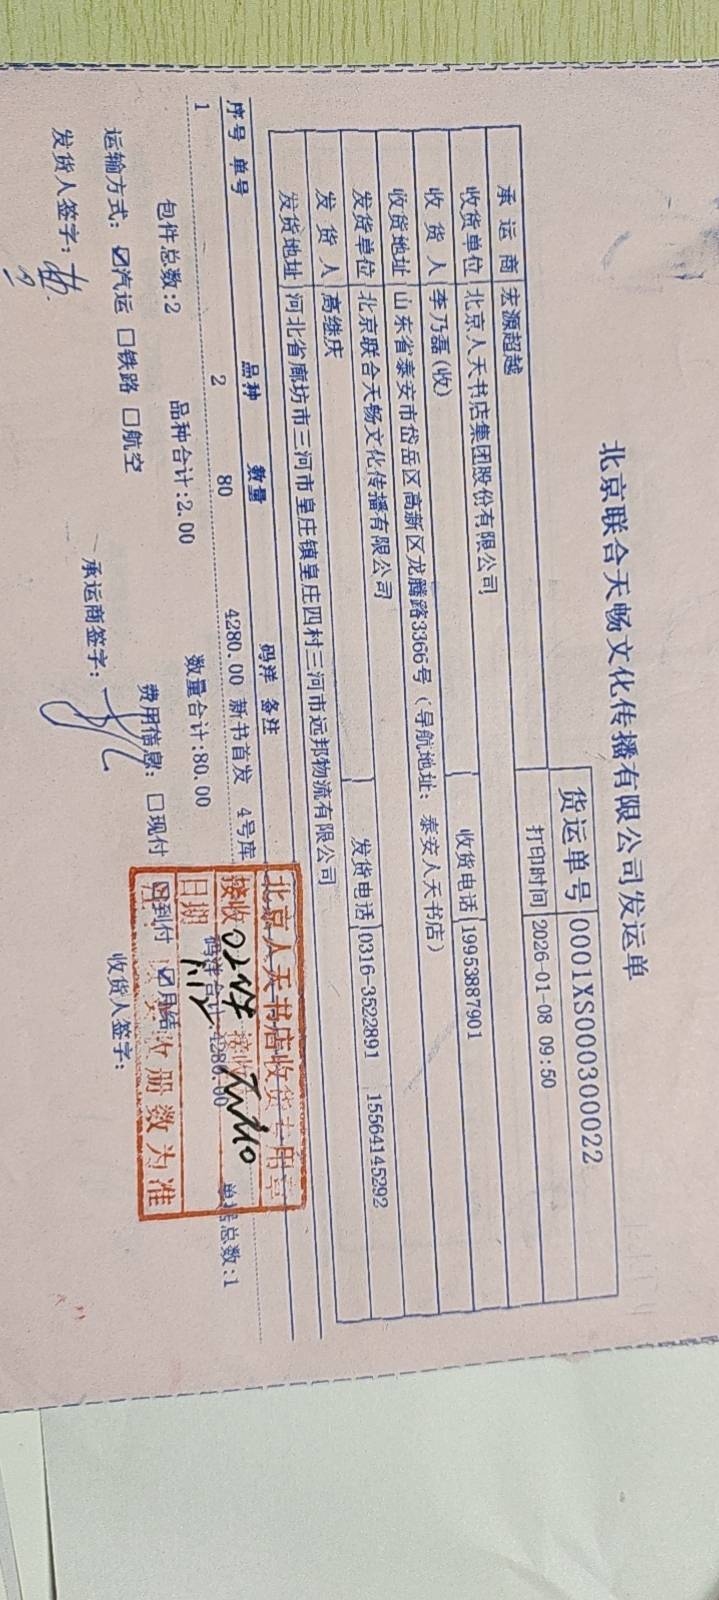 北京联合天畅文化传播有限公司发运单
货运单号 0001XS000300022
承运商 宏源超越 打印时间 2026-01-08 09:50
收货单位 北京人天书店集团股份有限公司 收货电话 19953887901
收货人 李乃磊(收)
收货地址 山东省泰安市岱岳区高新区龙腾路3366号(导航地址:泰安人天书店)
发货单位 北京联合天畅文化传播有限公司 发货电话 0316-3522891 15564145292
发货人 高继庆
发货地址 河北省廊坊市三河市皇庄镇皇庄四村三河市远邦物流有限公司
序号 单号 品种 数量 码洋 备注
1 2 80 4280.00 新书首发 4号库
包件总数:2 品种合计:2.00 数量合计:80.00 码洋合计:4280.00 单据总数:1
运输方式: ☑汽运 □铁路 □航空 费用信息: □现付 ☑到付 ☑月结
发货人签字: 承运商签字: 收货人签字:
北京人天书店收货专用章
接收 接收
日期
收册数为准